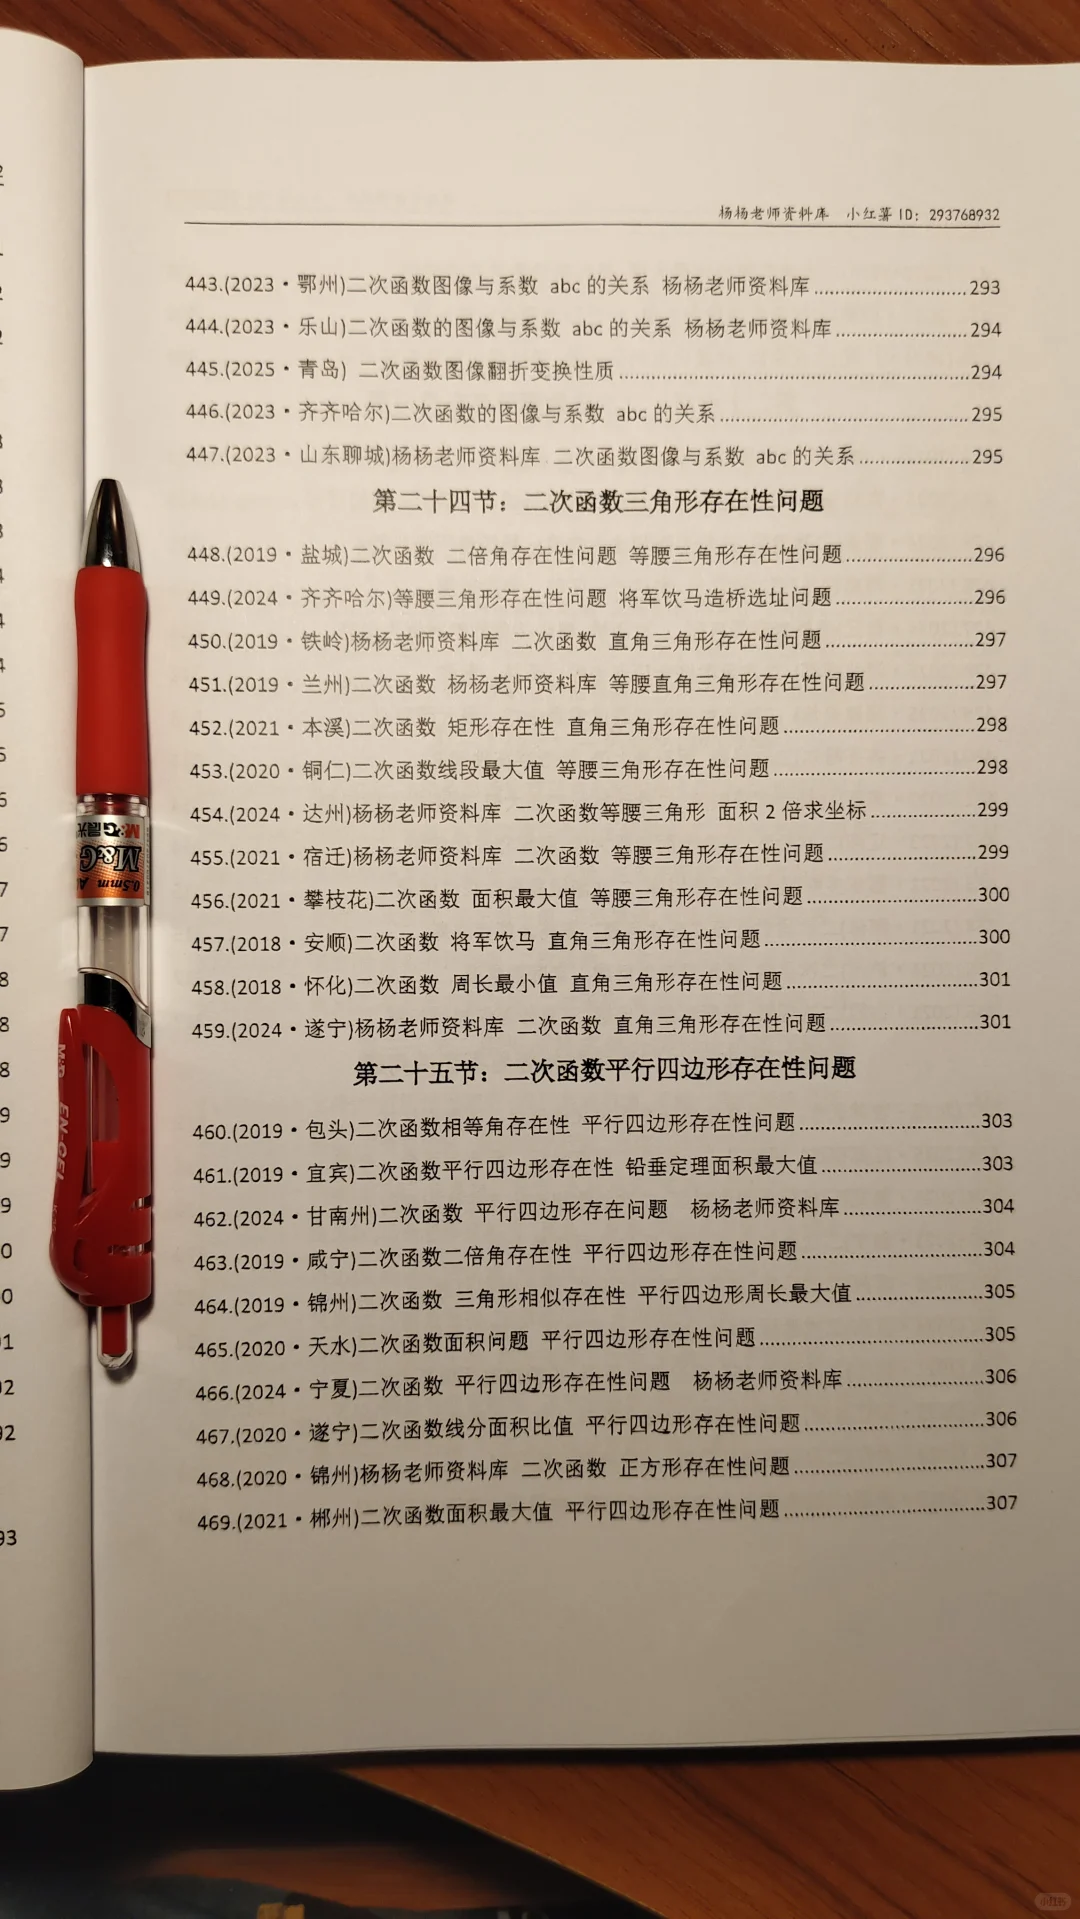 杨杨老师资料库 小红薯 ID: 293768932
443.(2023·鄂州)二次函数图像与系数 abc 的关系 杨杨老师资料库..........................293
444.(2023·乐山)二次函数的图像与系数 abc 的关系 杨杨老师资料库.......................294
445.(2025·青岛) 二次函数图像翻折变换性质..........................................................294
446.(2023·齐齐哈尔)二次函数的图像与系数 abc 的关系..........................................295
447.(2023·山东聊城)杨杨老师资料库 二次函数图像与系数 abc 的关系...................295
第二十四节：二次函数三角形存在性问题
448.(2019·盐城)二次函数 二倍角存在性问题 等腰三角形存在性问题......................296
449.(2024·齐齐哈尔)等腰三角形存在性问题 将军饮马造桥选址问题........................296
450.(2019·铁岭)杨杨老师资料库 二次函数 直角三角形存在性问题..........................297
451.(2019·兰州)二次函数 杨杨老师资料库 等腰直角三角形存在性问题...................297
452.(2021·本溪)二次函数 矩形存在性 直角三角形存在性问题.................................298
453.(2020·铜仁)二次函数线段最大值 等腰三角形存在性问题...................................298
454.(2024·达州)杨杨老师资料库 二次函数等腰三角形 面积 2 倍求坐标...................299
455.(2021·宿迁)杨杨老师资料库 二次函数 等腰三角形存在性问题..........................299
456.(2021·攀枝花)二次函数 面积最大值 等腰三角形存在性问题.............................300
457.(2018·安顺)二次函数 将军饮马 直角三角形存在性问题....................................300
458.(2018·怀化)二次函数 周长最小值 直角三角形存在性问题.................................301
459.(2024·遂宁)杨杨老师资料库 二次函数 直角三角形存在性问题..........................301
第二十五节：二次函数平行四边形存在性问题
460.(2019·包头)二次函数相等角存在性 平行四边形存在性问题...............................303
461.(2019·宜宾)二次函数平行四边形存在性 铅垂定理面积最大值............................303
462.(2024·甘南州)二次函数 平行四边形存在问题 杨杨老师资料库........................304
463.(2019·咸宁)二次函数二倍角存在性 平行四边形存在性问题...............................304
464.(2019·锦州)二次函数 三角形相似存在性 平行四边形周长最大值......................305
465.(2020·天水)二次函数面积问题 平行四边形存在性问题.....................................305
466.(2024·宁夏)二次函数 平行四边形存在性问题 杨杨老师资料库........................306
467.(2020·遂宁)二次函数线分面积比值 平行四边形存在性问题...............................306
468.(2020·锦州)杨杨老师资料库 二次函数 正方形存在性问题................................307
469.(2021·郴州)二次函数面积最大值 平行四边形存在性问题..................................307
M&G
0.5mm
小红书